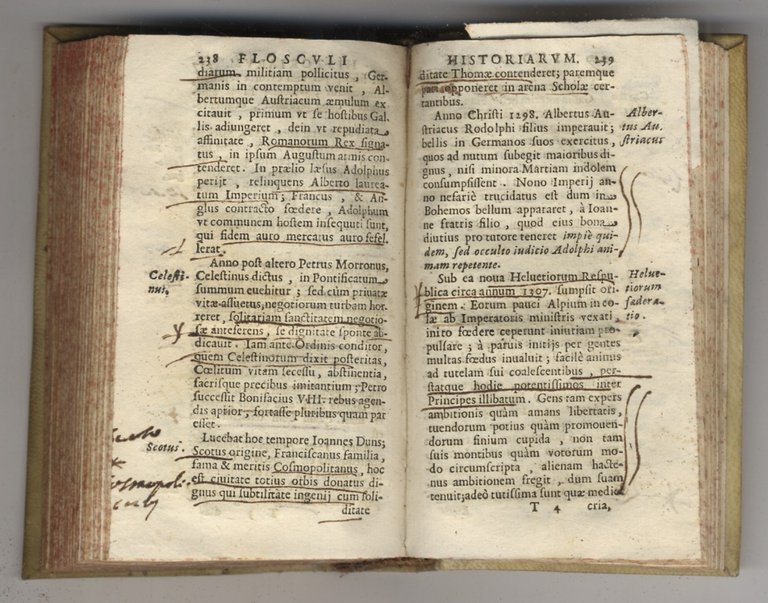 238 FLOSCVLI
diarum militiam pollicitus, Ger-
manis in contemptum venit, Al-
bertumque Austriacum æmulum ex
citauit, primum vt se hostibus Gal
lis adiungeret, dein vt repudiata
affinitate, Romanorum Rex signa-
tus, in ipsum Augustum armis con-
tenderet. In prælio læsus Adolphus
perijt, relinquens Alberto laurea-
tum Imperium; Francus, & An-
glus contracto fœdere, Adolphum
vt communem hostem insequuti sunt,
qui fidem auro mercatus auro fefel-
lerat.
Anno post altero Petrus Morronus,
Celesti-
nus,
Celestinus dictus, in Pontificatum
summum euehitur; sed cùm priuatæ
vitæ assuetus, negotiorum turbam hor-
reret, solitariam sanctitatem negotio-
sæ anteferens, se dignitate sponte ab
dicauit. Iam ante Ordinis conditor,
quem Celestinorum dixit posteritas,
Cœlitum vitam secessu, abstinentia,
sacrisque precibus imitantium; Petro
successit Bonifacius VIII: rebus agen-
dis aptior; fortasse pluribus quàm par
esset.
Lucebat hoc tempore Ioannes Duns;
Scotus.
Scotus origine, Franciscanus familia,
fama & meritis Cosmopolitanus, hoc
est ciuitate totius orbis donatus di-
gnus qui subtilitate ingenij cum soli-
ditate
HISTORIARVM. 239
ditate Thomæ contenderet; paremque
opponeret in arena Scholæ cer-
tantibus.
Anno Christi 1298. Albertus Au-
striacus Rodolphi filius imperauit;
Alber-
tus Au-
striacus
bellis in Germanos suos exercitus,
quos ad nutum subegit maioribus di-
gnus, nisi minora Martiam indolem
consumpsissent. Nono Imperij an-
no nefariè trucidatus est dum in
Bohemos bellum appararet, à Ioan-
ne fratris filio, quod eius bona
diutius pro tutore teneret impiè qui-
dem, sed occulto iuditio Adolphi ani-
mam repetente.
Sub ea noua Heluetiorum Respu-
blica circa annum 1307. sumpsit ori-
ginem. Eorum pauci Alpium inco-
Helue-
tiorum
fœdera-
tio.
læ ab Imperatoris ministris vexati,
inito fœdere ceperunt iniuriam pro-
pulsare; à paruis initijs per gentes
multas fœdus inualuit; facilè animis
ad tutelam sui coalescentibus, per-
statque hodie potentissimos inter
Principes illibatum. Gens tam expers
ambitionis quàm amans libertatis,
tuendorum potius quàm promouen-
dorum finium cupida, non tam
suis montibus quàm votorum mo-
do circumscripta, alienam hacte-
nus ambitionem fregit, dum suam
tenuit; adeò tutissima sunt quæ medio
T 4 cria,